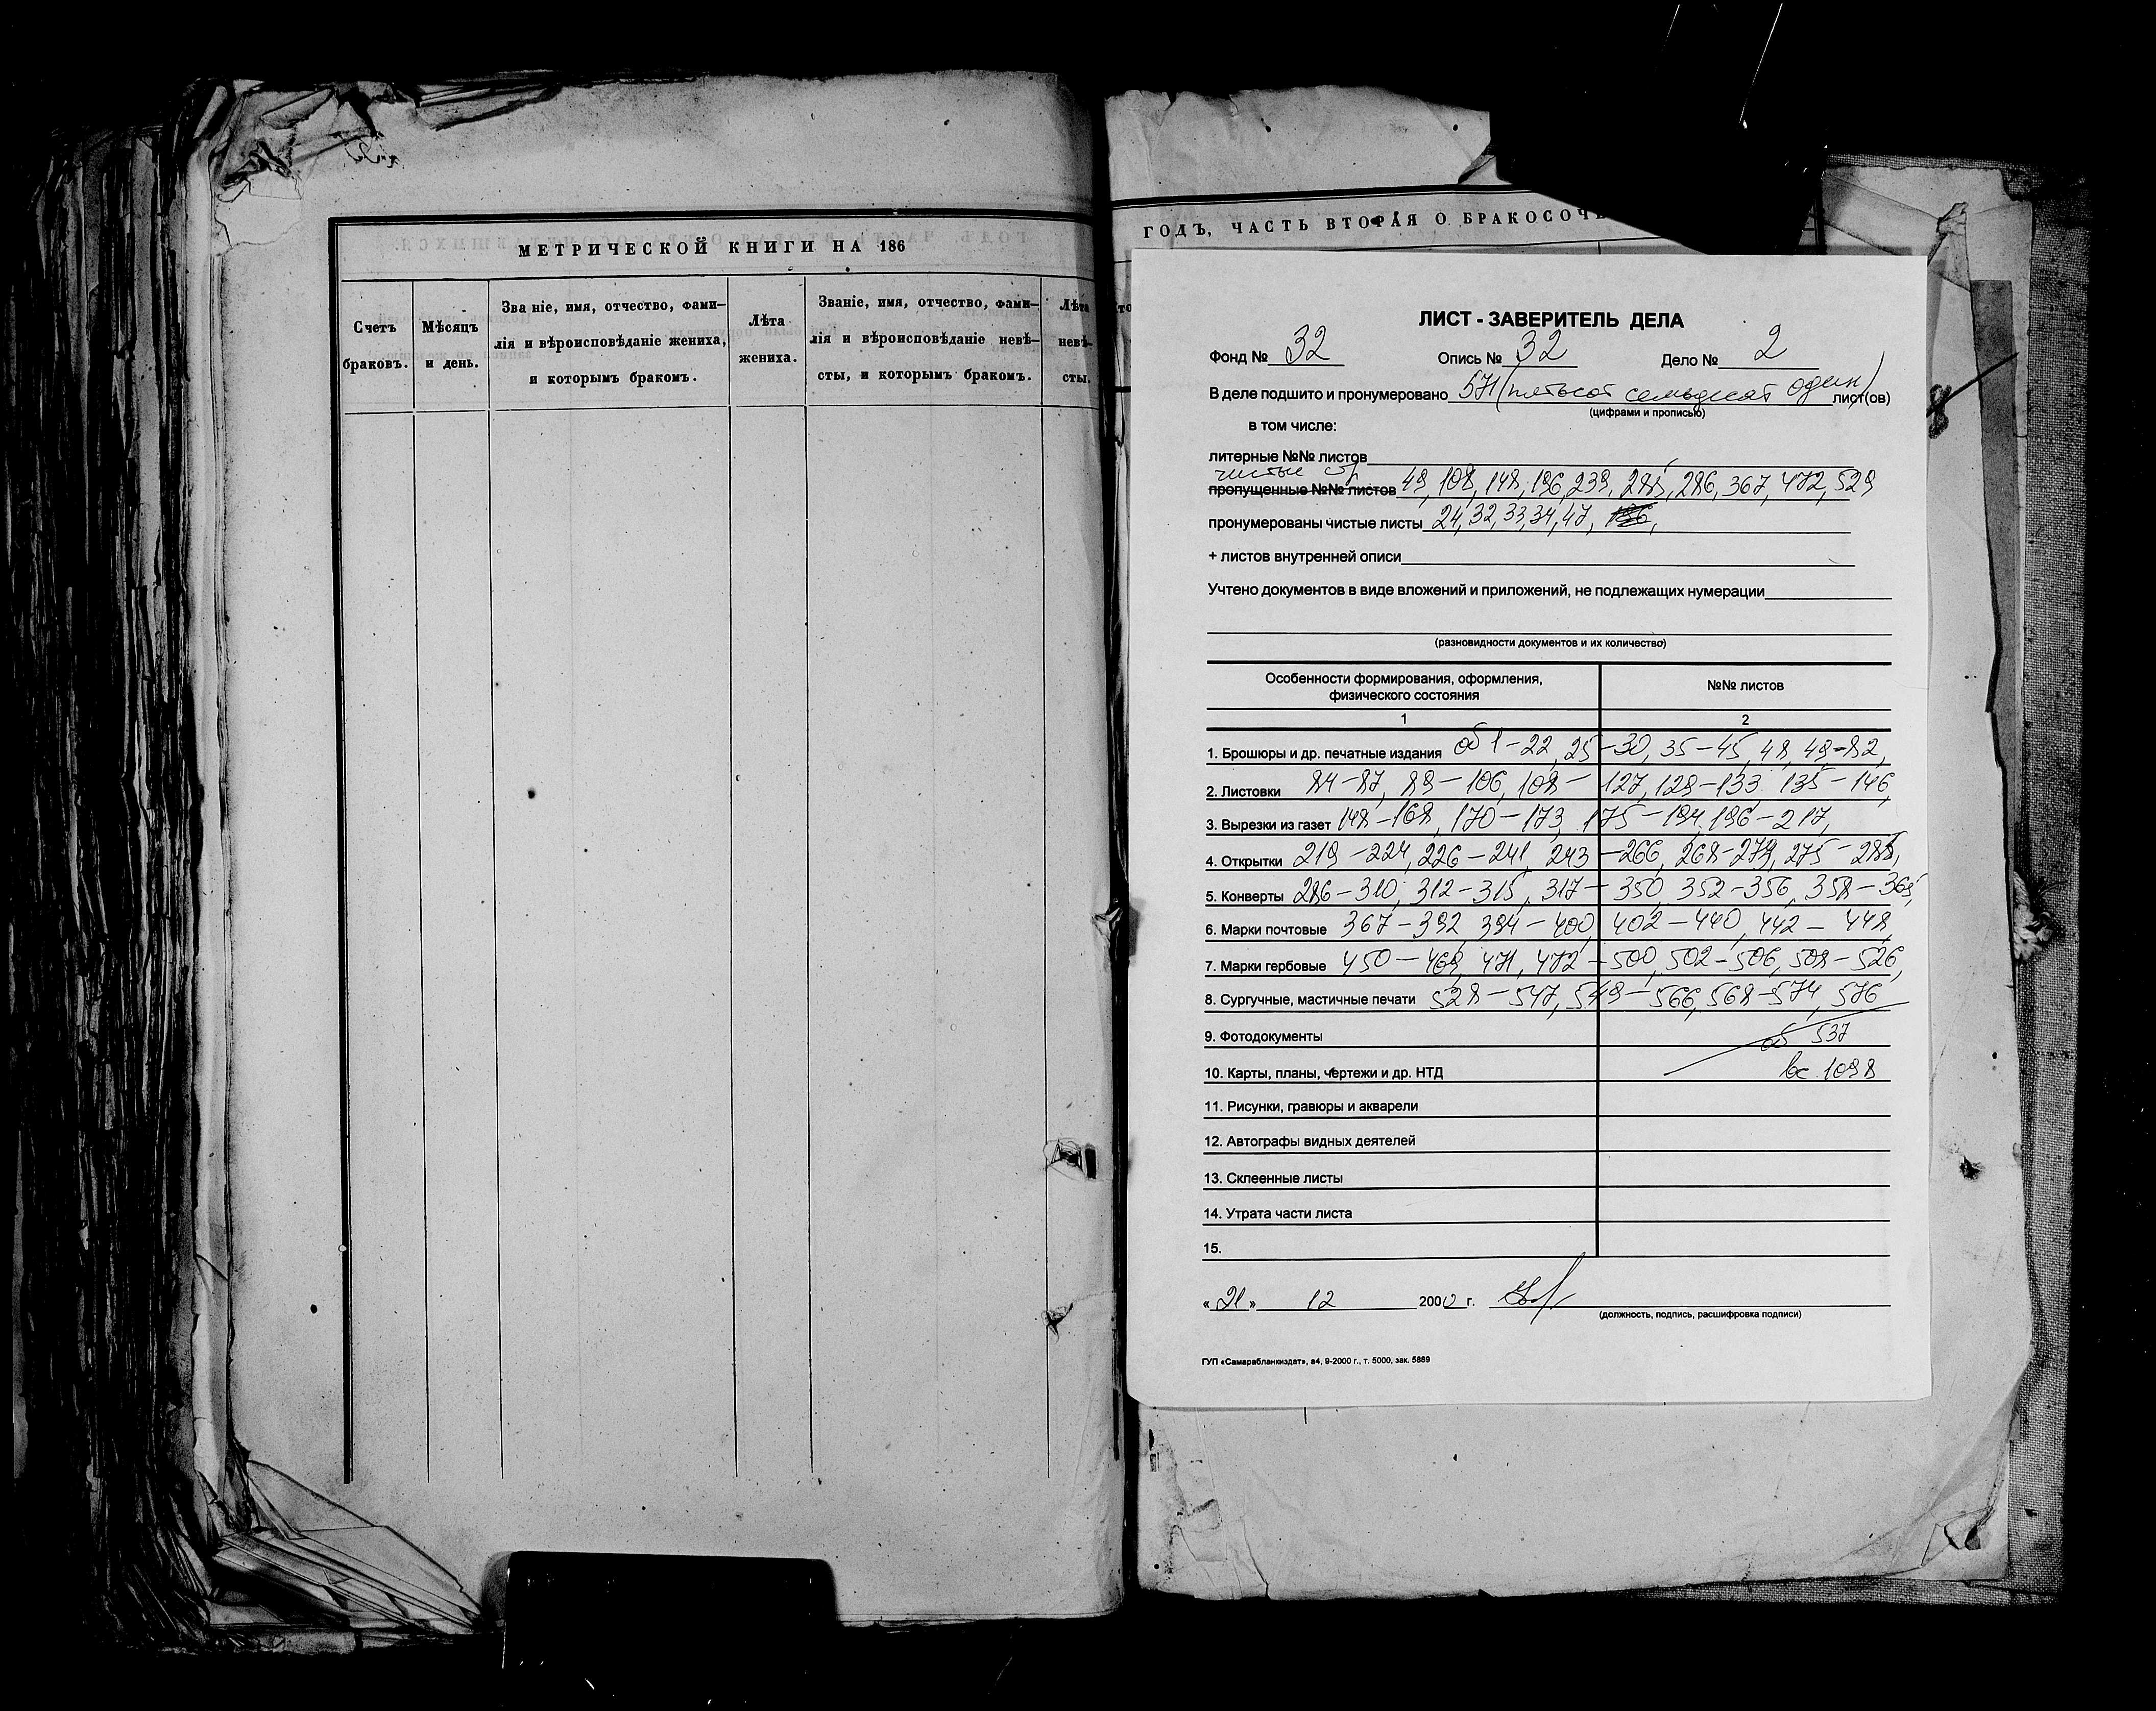 МЕТРИЧЕСКОЙ КНИГИ НА 186
Счетъ браковъ.
Мѣсяцъ и день.
Зва ніе, имя, отчество, фами-
лія и вѣроисповѣданіе жениха,
и которымъ бракомъ.
Лѣта
жениха.
Званіе, имя, отчество, фами-
лія и вѣроисповѣданіе невѣ-
сты, и которымъ бракомъ.
Лѣта
невѣ-
сты.
ГОДЪ, ЧАСТЬ ВТОРАЯ О БРАКОСОЧ
ЛИСТ - ЗАВЕРИТЕЛЬ ДЕЛА
Фонд № 32 Опись № 32 Дело № 2
В деле подшито и пронумеровано 571 (пятьсот семьдесят один) лист(ов)
(цифрами и прописью)
в том числе:
литерные №№ листов
чистые стр.
пропущенные №№ листов 49, 108, 148, 196, 239, 285, 286, 367, 472, 529
пронумерованы чистые листы 24, 32, 33, 34, 47,
+ листов внутренней описи
Учтено документов в виде вложений и приложений, не подлежащих нумерации
(разновидности документов и их количество)
Особенности формирования, оформления,
физического состояния
№№ листов
1 2
1. Брошюры и др. печатные издания об 1-22, 25-30, 35-45, 48, 49-82,
2. Листовки 84-87, 89-106, 108-127, 129-133, 135-146,
3. Вырезки из газет 148-168, 170-173, 175-194, 196-217,
4. Открытки 219-224, 226-241, 243-266, 268-273, 275-285,
5. Конверты 286-310, 312-315, 317-350, 352-356, 358-365,
6. Марки почтовые 367-392, 394-400, 402-440, 442-448,
7. Марки гербовые 450-469, 471, 472-500, 502-506, 508-526,
8. Сургучные, мастичные печати 528-547, 549-566, 568-574, 576
9. Фотодокументы об 537
10. Карты, планы, чертежи и др. НТД вс. 1098
11. Рисунки, гравюры и акварели
12. Автографы видных деятелей
13. Склеенные листы
14. Утрата части листа
15.
« 21 » 12 2000 г.
(должность, подпись, расшифровка подписи)
ГУП «Самарабланкиздат», а4, 9-2000 г., т. 5000, зак. 5889